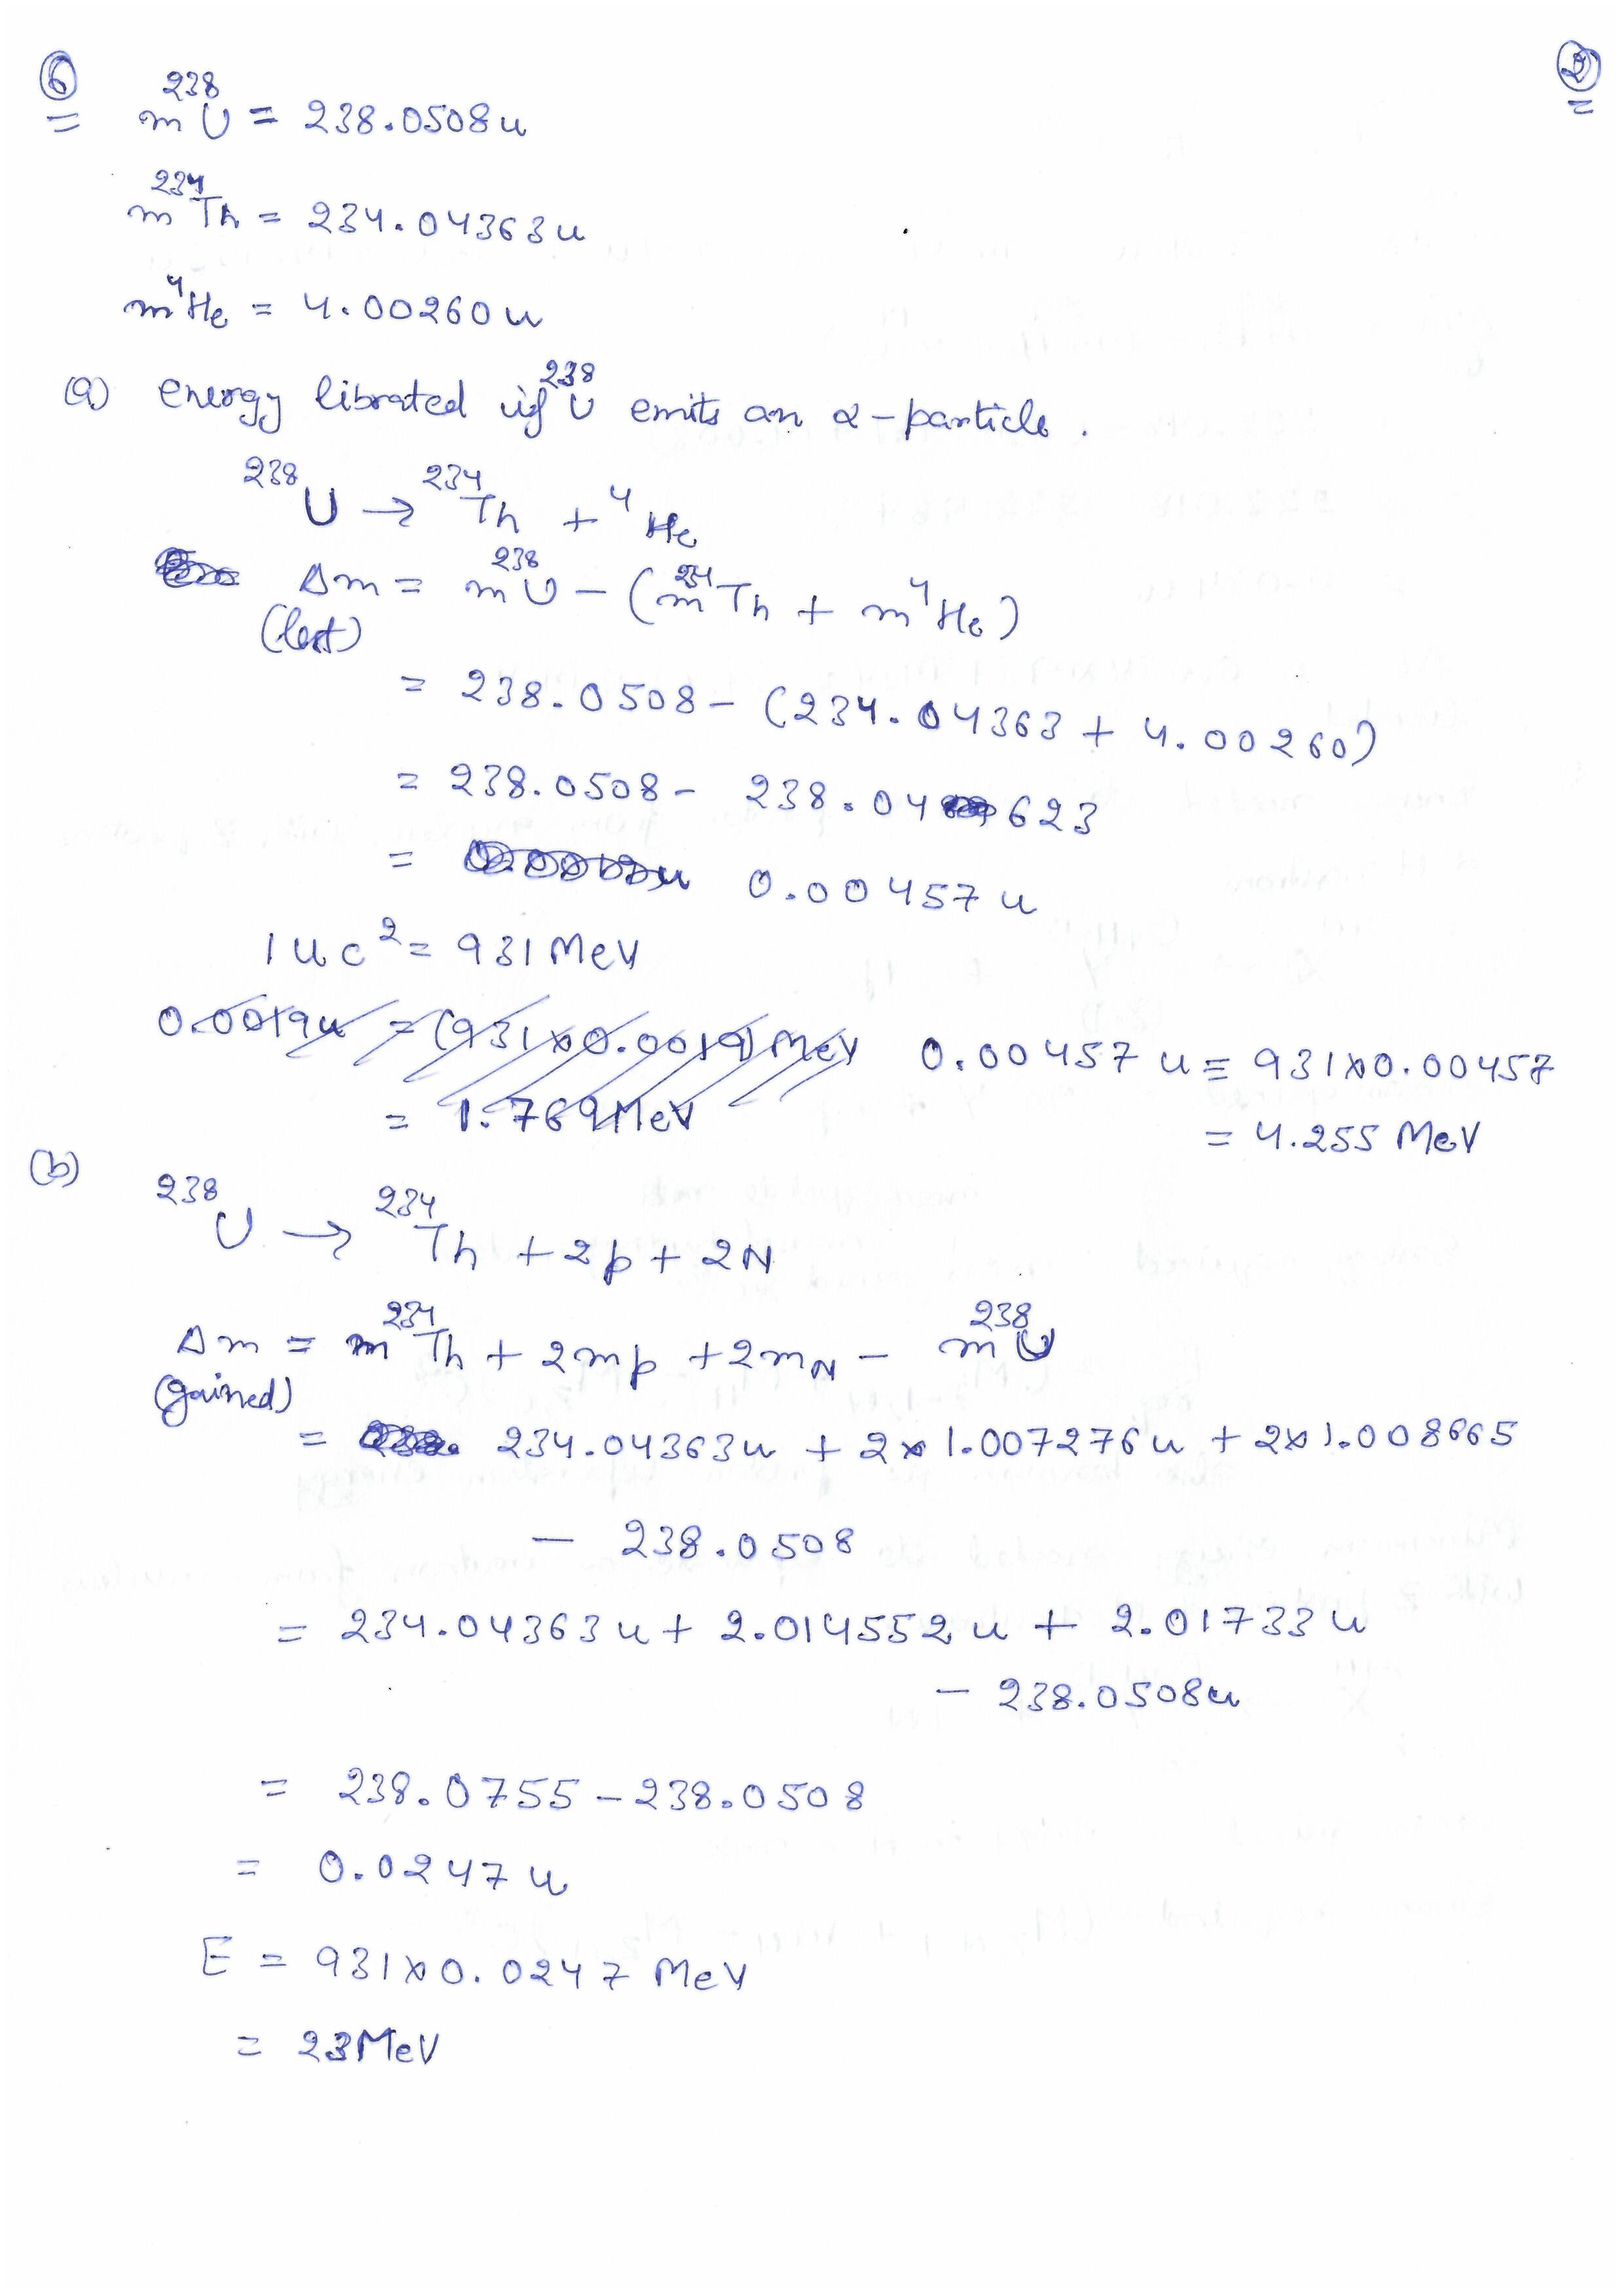 ⑥ ②
m²³⁸U = 238.0508u
m²³⁴Th = 234.04363u
m⁴He = 4.00260u
(a) energy librated if ²³⁸U emits an α-particle.
²³⁸U → ²³⁴Th + ⁴He
Δm = m²³⁸U - (m²³⁴Th + m⁴He)
(lost)
= 238.0508 - (234.04363 + 4.00260)
= 238.0508 - 238.04623
= 0.00457u
1uc² = 931 MeV
0.0019u = (931×0.0019) MeV 0.00457u = 931×0.00457
= 1.769MeV = 4.255 MeV
(b)
²³⁸U → ²³⁴Th + 2p + 2N
Δm = m²³⁴Th + 2mp + 2mN - m²³⁸U
(gained)
= 234.04363u + 2×1.007276u + 2×1.008665
- 238.0508
= 234.04363u + 2.014552u + 2.01733u
- 238.0508u
= 238.0755 - 238.0508
= 0.0247u
E = 931×0.0247 MeV
= 23MeV